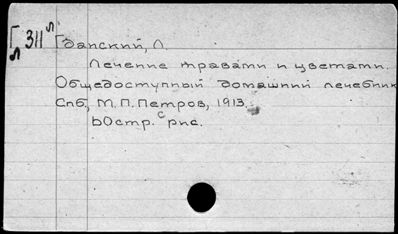 Г 311 л
л
Гданский, Л.
Лечение травами и цветами.
Общедоступный домашний лечебник
Спб, М.П.Петров, 1913.
60стр. с рис.